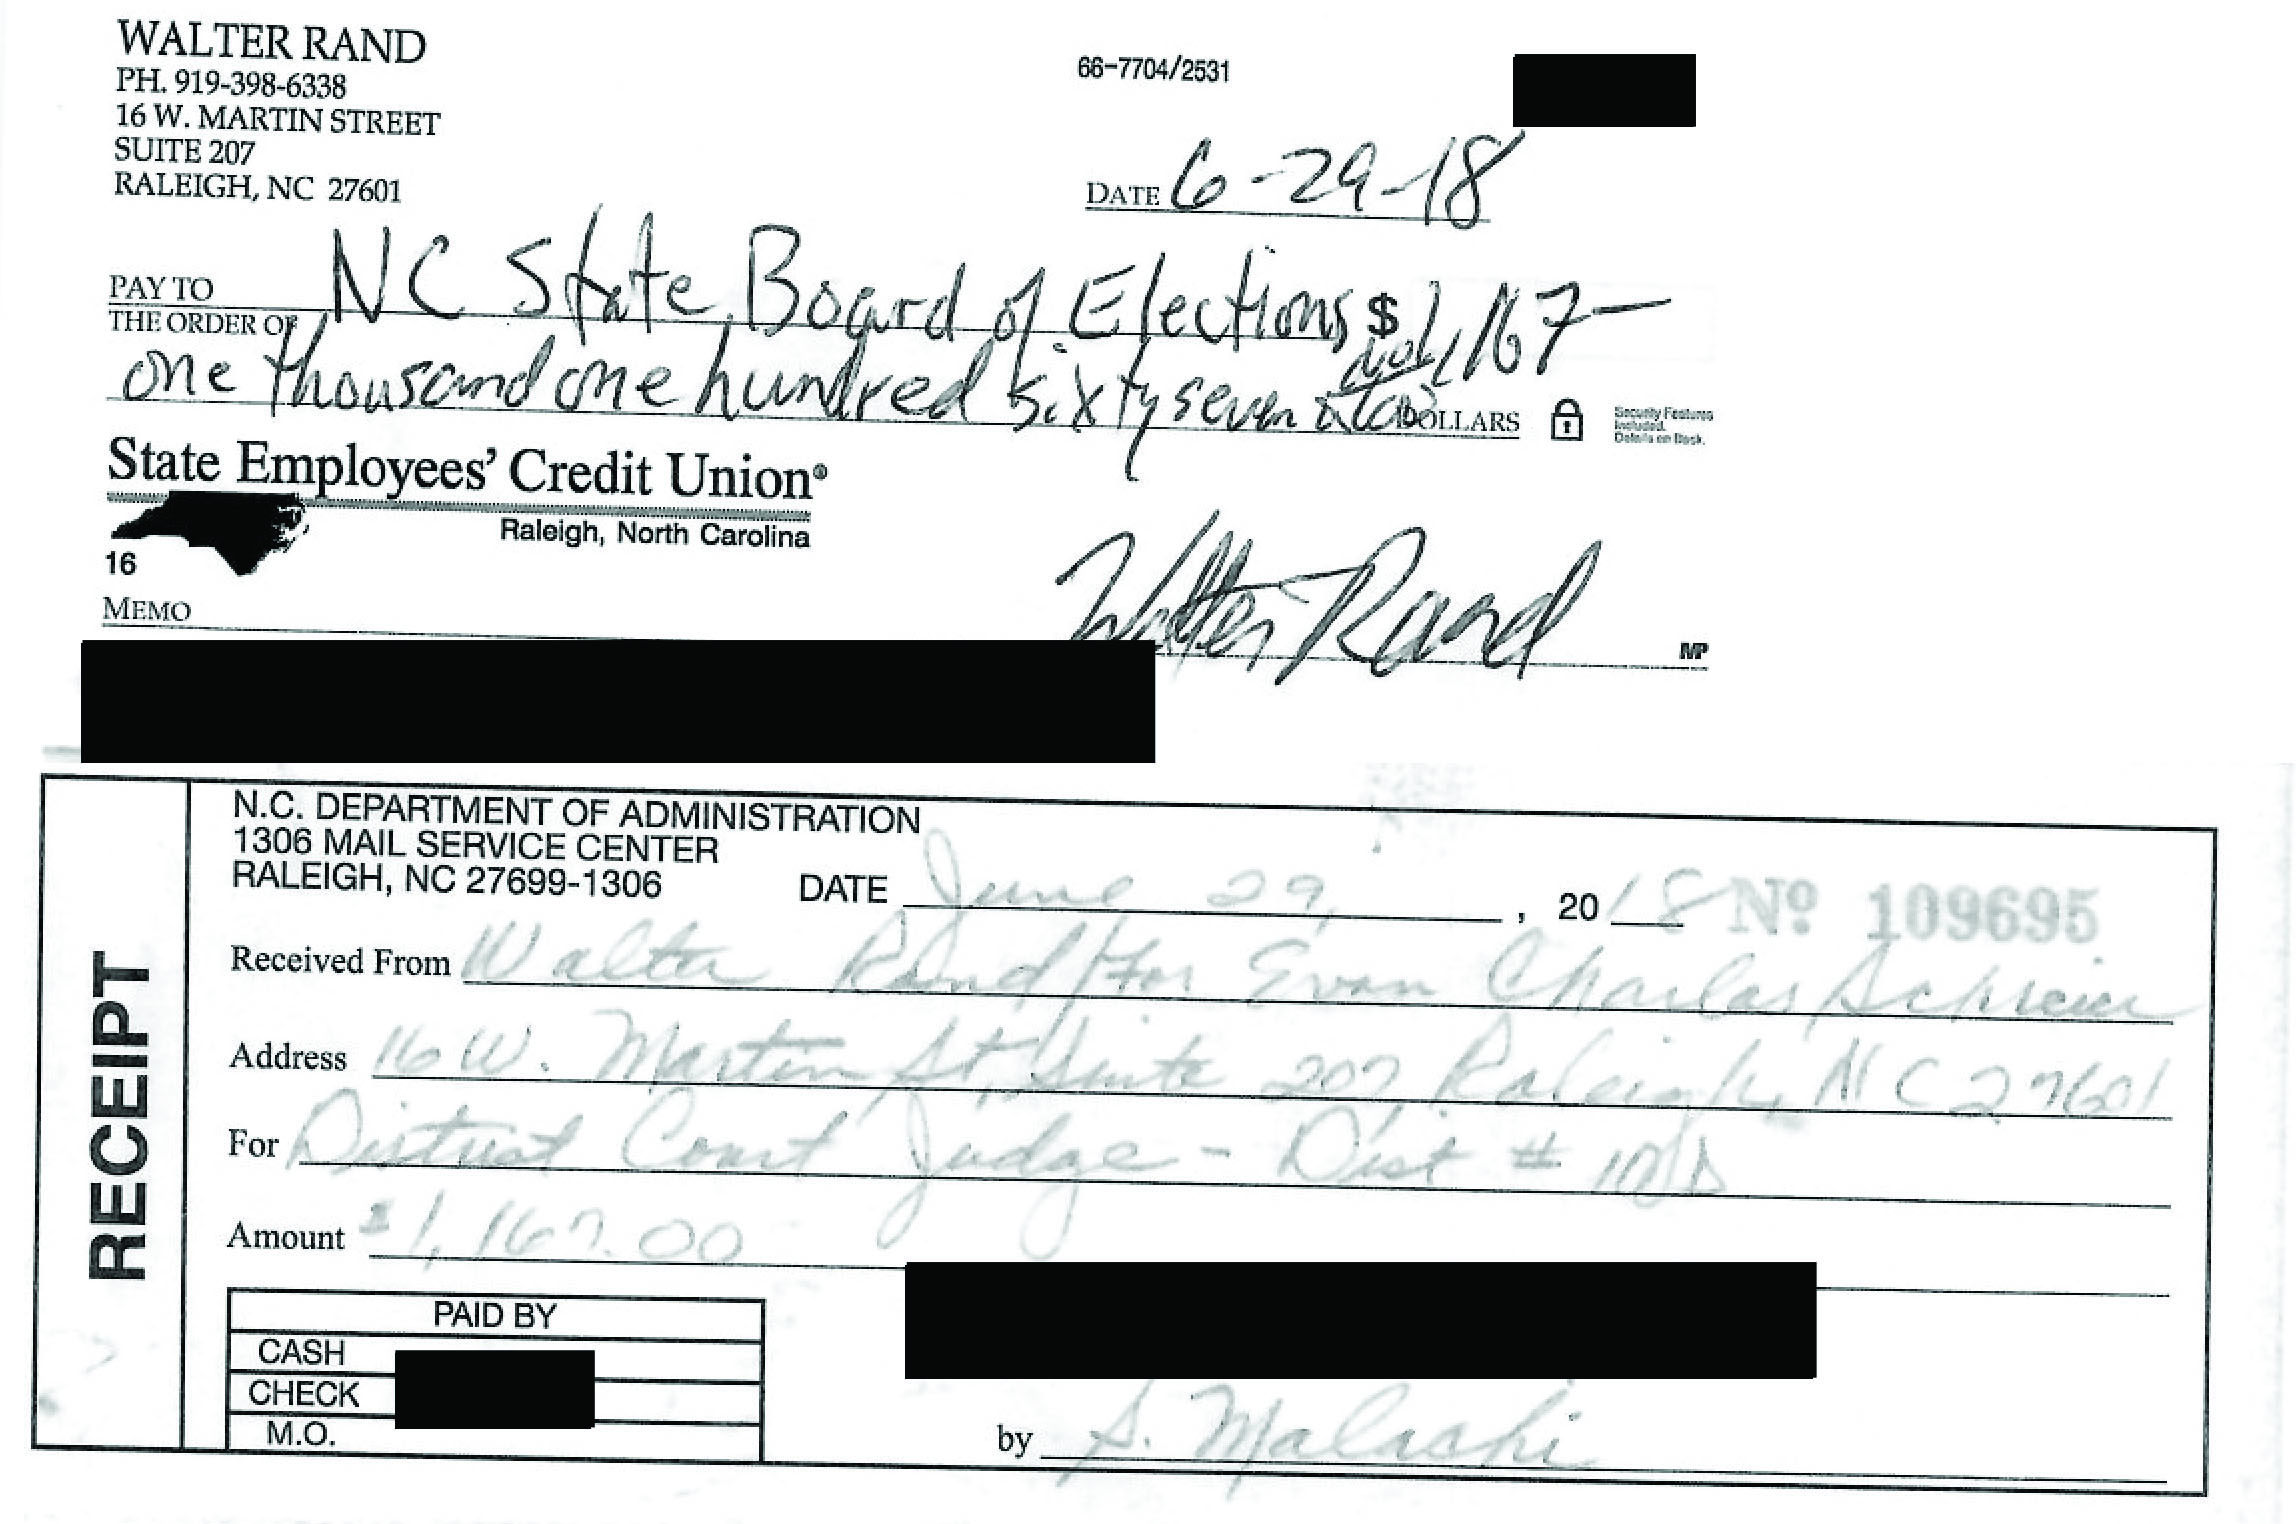 WALTER RAND
PH. 919-398-6338
16 W. MARTIN STREET
SUITE 207
RALEIGH, NC 27601
66-7704/2531
DATE 6-29-18
PAY TO THE ORDER OF NC State Board of Elections $ 1,167-
one thousand one hundred sixty seven DOLLARS
Security Features Included. Details on Back.
State Employees' Credit Union®
Raleigh, North Carolina
16
MEMO
Walter Rand
MP
RECEIPT
N.C. DEPARTMENT OF ADMINISTRATION
1306 MAIL SERVICE CENTER
RALEIGH, NC 27699-1306
DATE June 29, , 2018 No 109695
Received From Walter Rand/for Evan Charles
Address 16 W. Martin St, Suite 207 Raleigh, NC 27601
For District Court Judge - Dist # 10D
Amount $1,167.00
PAID BY
CASH
CHECK
M.O.
by S. Malachi